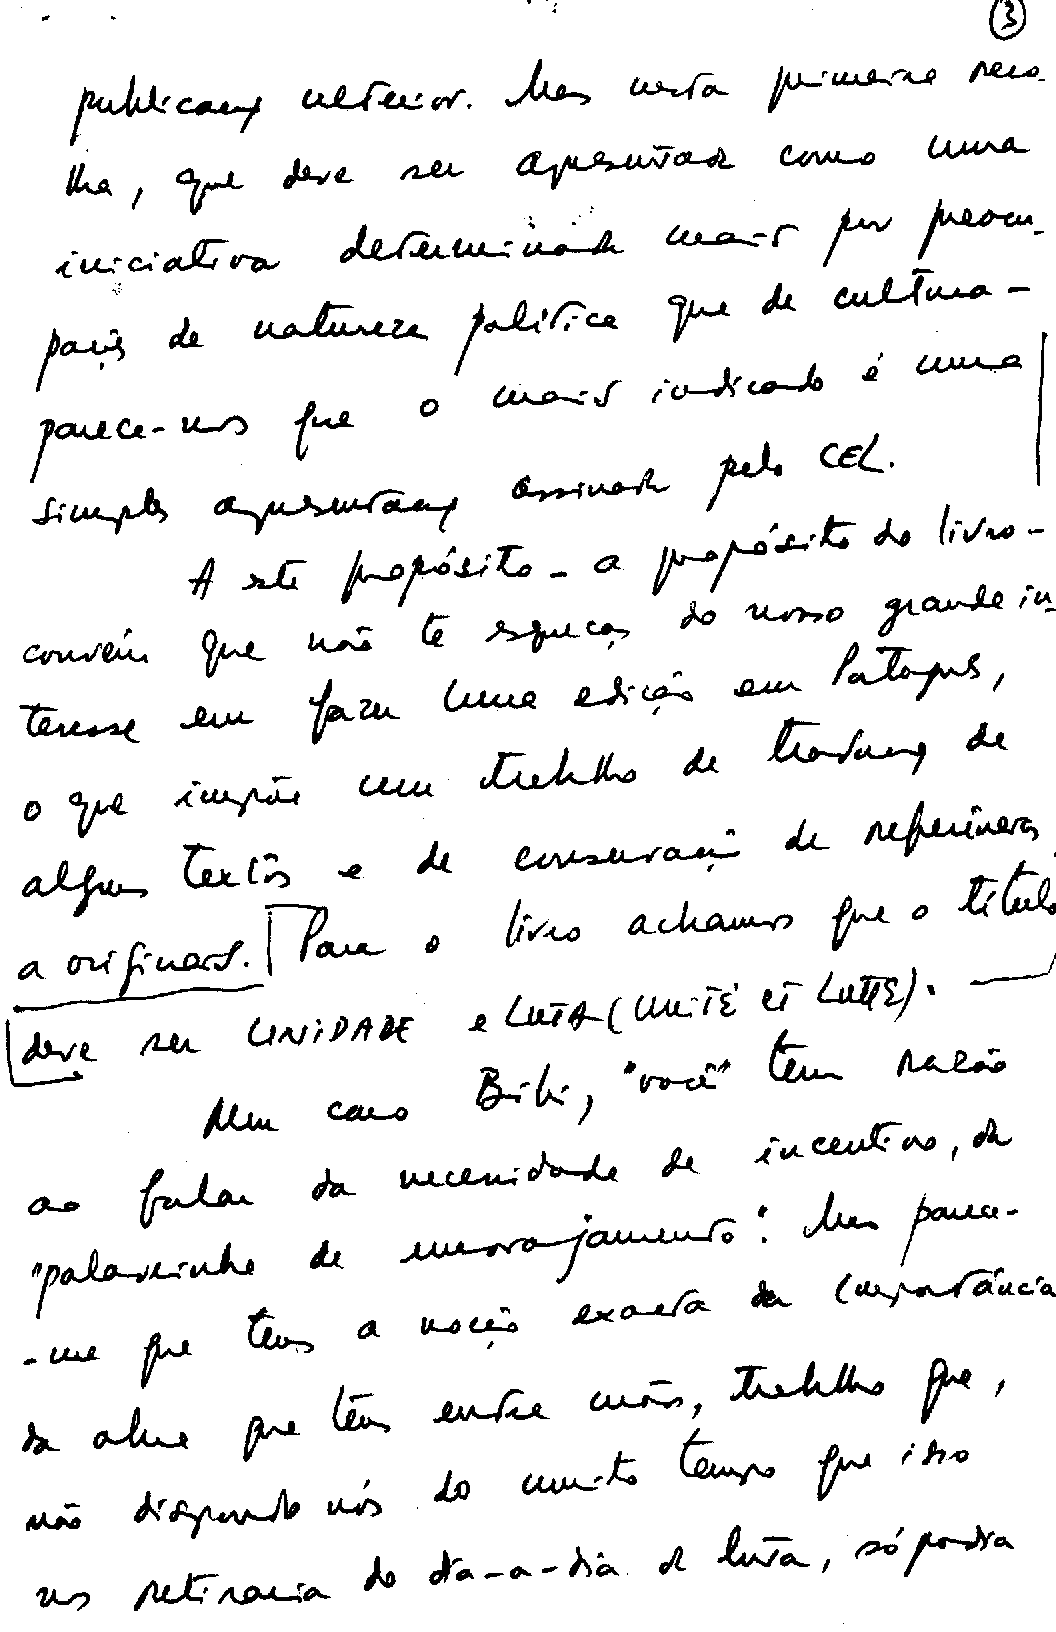 3
publicação ulterior. Mas nesta primeira reco-
lha, que deve ser apresentada como uma
iniciativa determinada mais por preocu-
pações de natureza política que de cultura -
parece-nos que o mais indicado é uma
simples apresentação assinada pelo CEL.
A este propósito - a propósito do livro -
convém que não te esqueças do nosso grande in-
teresse em fazer uma edição em Português,
o que impõe um trabalho de tradução de
alguns textos e de conservação de referências
a originais. Para o livro achamos que o título
deve ser UNIDADE e LUTA (UNITÉ ET LUTTE).
Meu caro Bibi, "você" tem razão
ao falar da necessidade de incentivo, da
"palavrinha de encorajamento". Mas parece-
-me que tens a noção exacta da importância
da obra que tens entre mãos, trabalho que,
não dispondo nós do muito tempo que isso
nos retiraria do dia-a-dia da luta, só podia